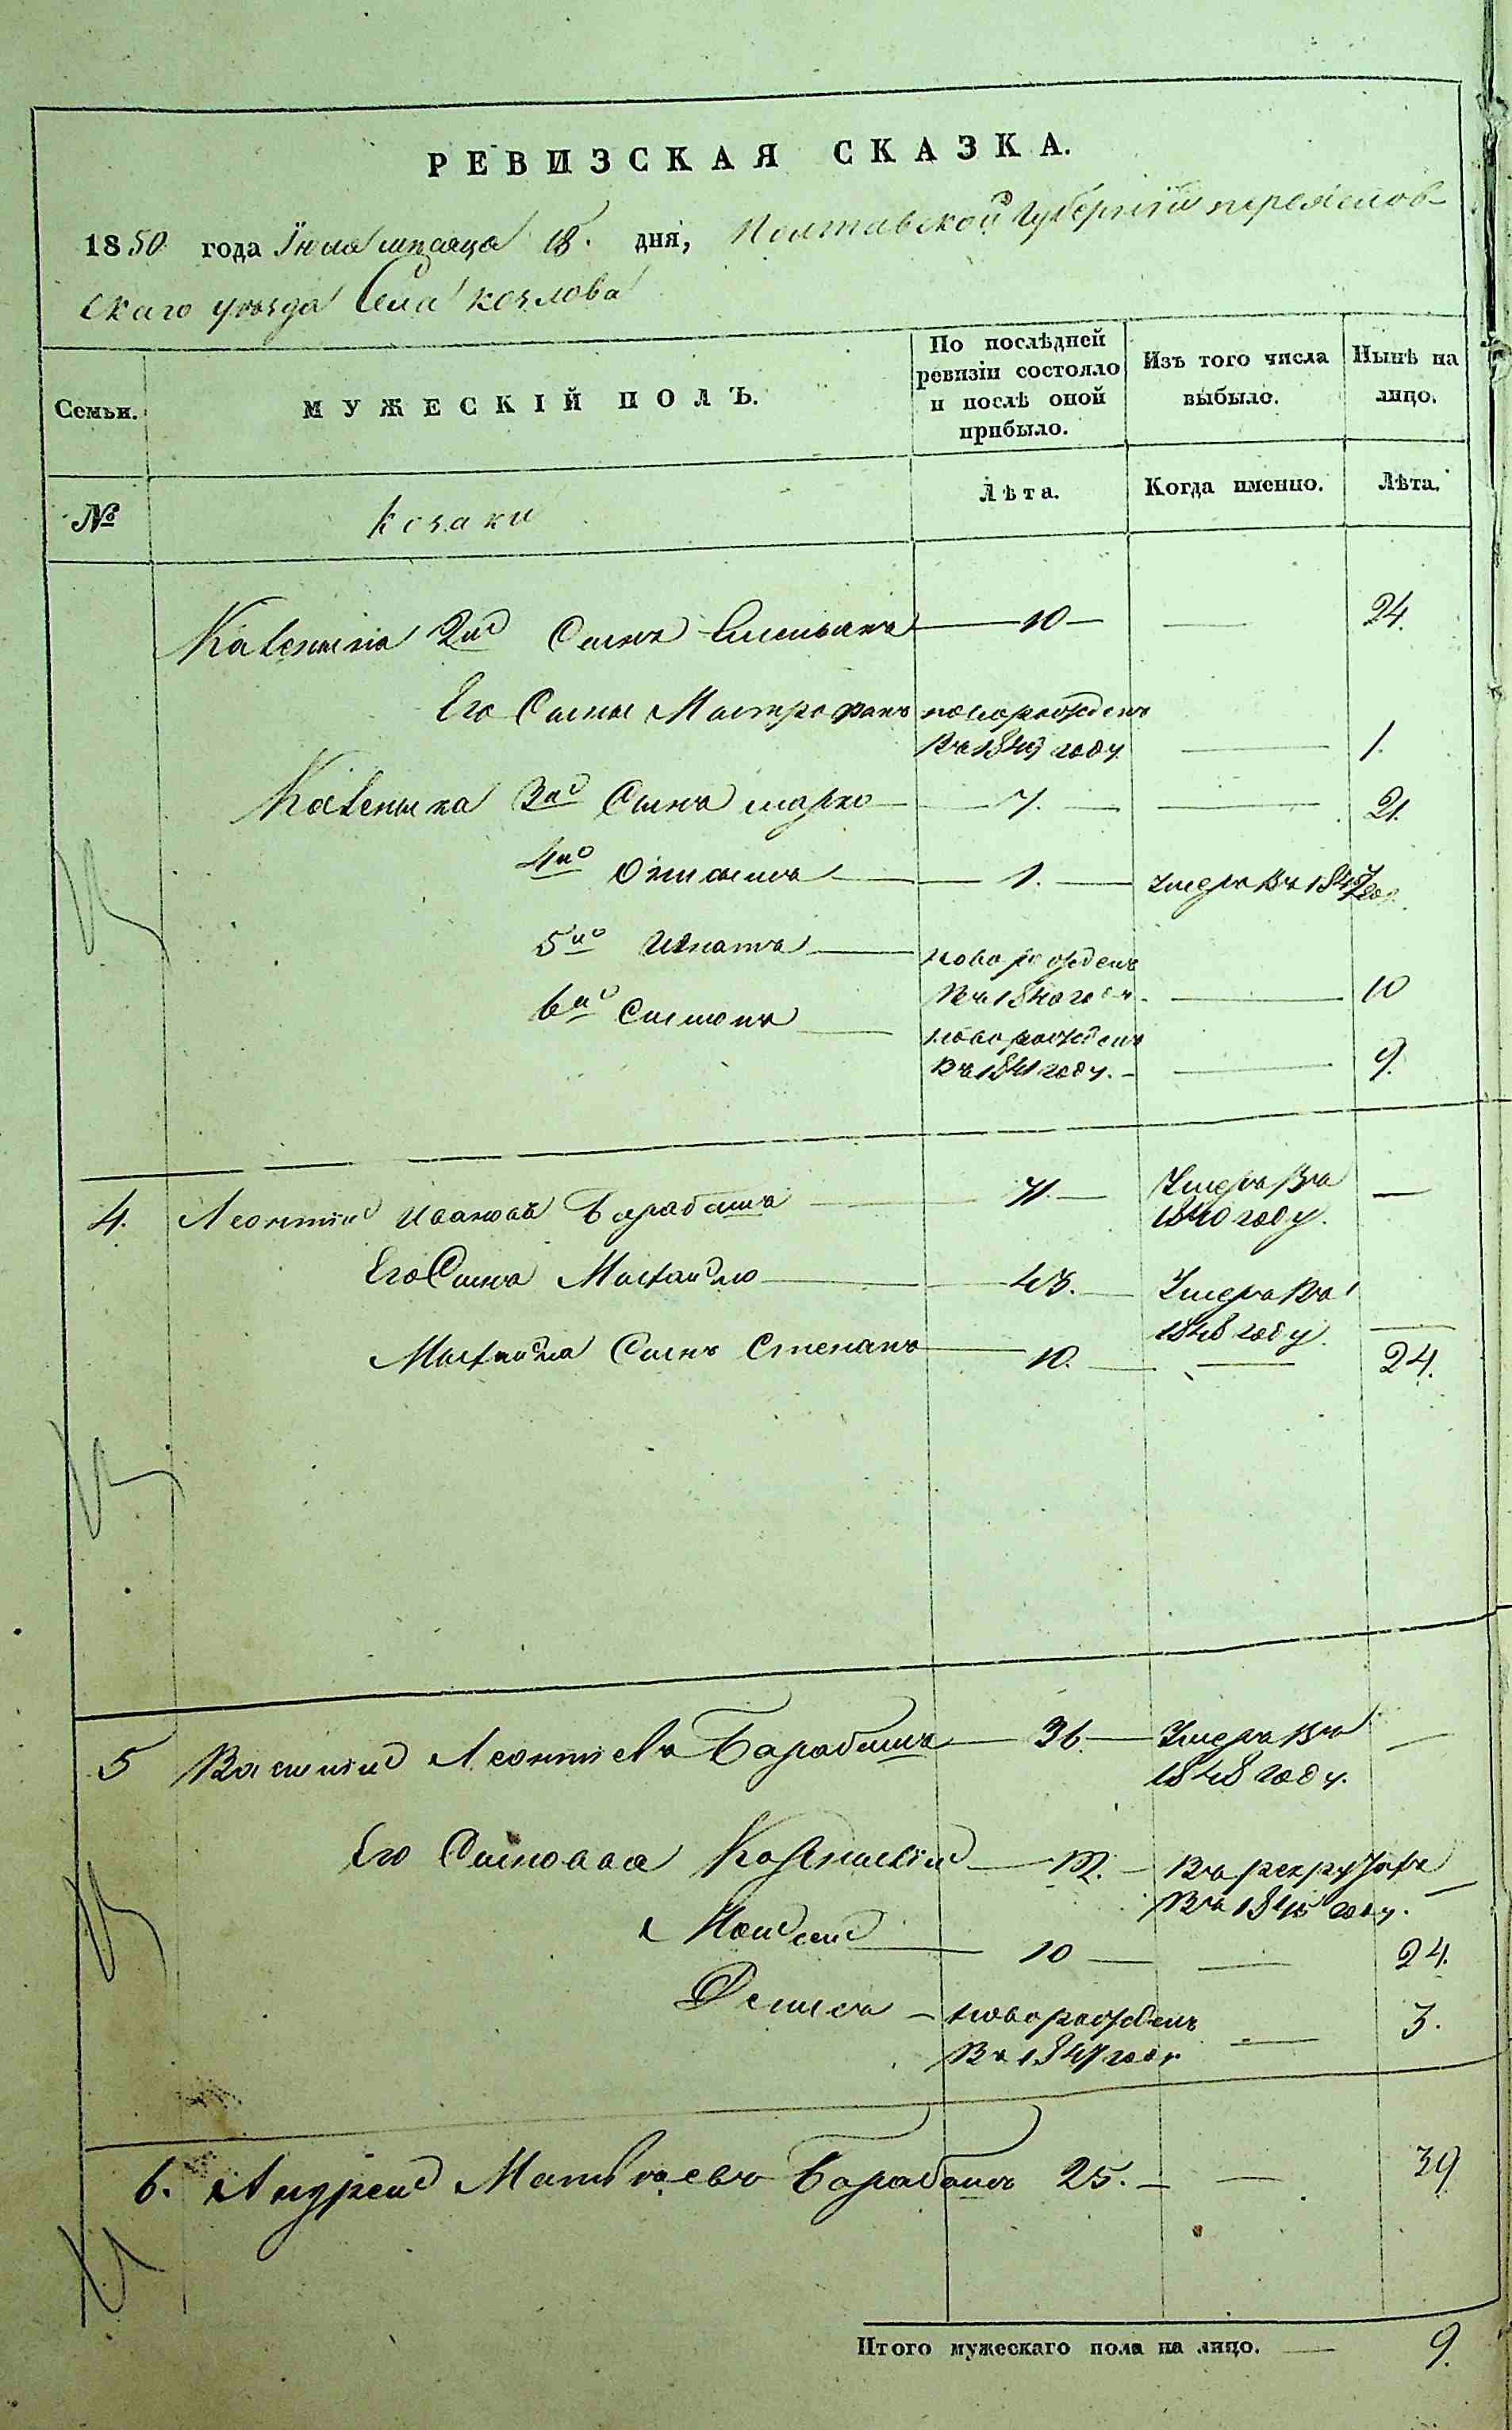 РЕВИЗСКАЯ СКАЗКА.
1850 года Июля мѣсяца 18. дня, Полтавской Губерніи переяслов-
скаго уѣзда Села козлова
Семьи.
МУЖЕСКІЙ ПОЛЪ.
По послѣдней ревизіи состояло и послѣ оной прибыло.
Изъ того числа выбыло.
Нынѣ на лицо.
№
козаки
Лѣта.
Когда именно.
Лѣта.
2й Сынъ 10 24.
Его Сынъ Митрофанъ новорожденъ
Въ 1849 году 1.
3й Сынъ марко 7. 21.
4й 1. умеръ Въ
5й Игнатъ новорожденъ
Въ 1840 году 10
6й Симонъ новорожденъ
Въ 1841 году. 9.
4. Леонтій Ивановъ Барабашъ 71. Умеръ Въ
1840 году.
Его Сынъ Михайло 43. Умеръ Въ
1848 году
Михайла Сынъ Степанъ 10. 24.
5 Василій Леонтіевъ Барабашъ 36. Умеръ Въ
1848 году.
Его Сыновья Въ рекрутахъ
Въ году.
Моисей 10 24.
Денисъ новорожденъ 3.
Въ 1847 году
6. Андрей Матвѣевъ Барабашъ 25. 39
Итого мужескаго пола на лицо. 9.